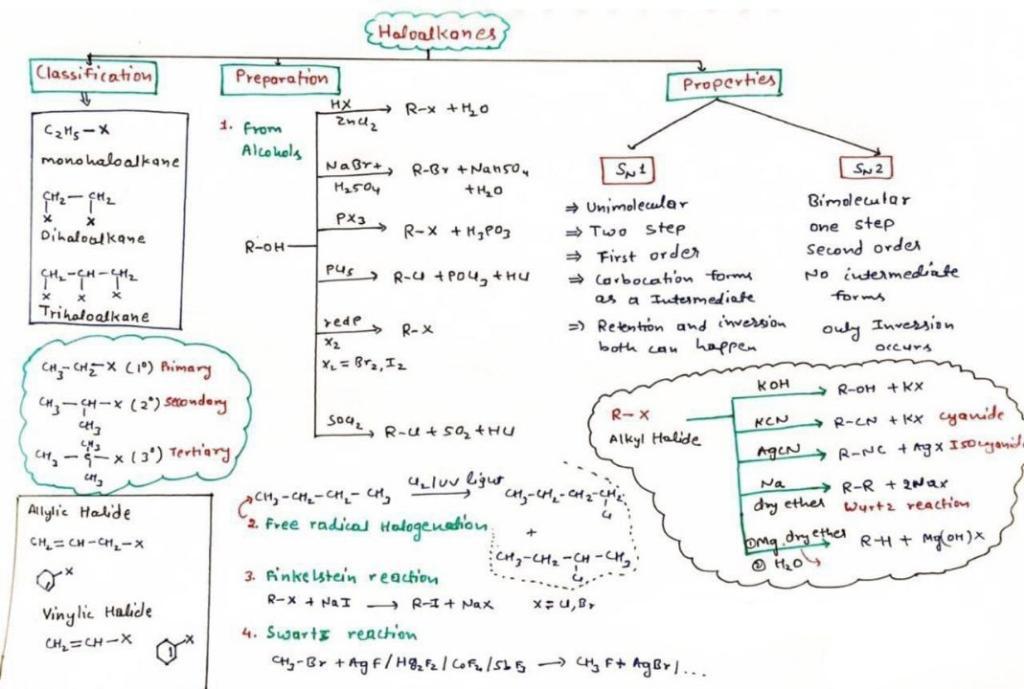 Haloalkanes
Classification
C2H5-X
monohaloalkane
CH2-CH2
X X
Dihaloalkane
CH2-CH-CH2
X X X
Trihaloalkane
CH3-CH2-X (1°) Primary
CH3-CH-X (2°) Secondary
CH3
CH3
CH3-C-X (3°) Tertiary
CH3
Allylic Halide
CH2=CH-CH2-X
X
Vinylic Halide
CH2=CH-X
X
Preparation
1. From
Alcohols
R-OH
HX
ZnCl2
R-X + H2O
NaBr+
H2SO4
R-Br + NaHSO4
+H2O
PX3
R-X + H3PO3
PCl5
R-Cl + POCl3 + HCl
red P
X2
R-X
X2 = Br2, I2
SOCl2
R-Cl + SO2 + HCl
CH3-CH2-CH2-CH3
Cl2/UV light
CH3-CH2-CH2-CH2
Cl
+
CH3-CH2-CH-CH3
Cl
2. Free radical Halogenation
3. Finkelstein reaction
R-X + NaI → R-I + NaX X= Cl, Br
4. Swartz reaction
CH3-Br + AgF/Hg2F2/CoF2/SbF3 → CH3F + AgBr/...
Properties
SN1
⇒ Unimolecular
⇒ Two step
⇒ First order
⇒ Carbocation forms
as a Intermediate
⇒ Retention and inversion
both can happen
SN2
Bimolecular
one step
Second order
No intermediate
forms
only Inversion
occurs
R-X
Alkyl Halide
KOH
R-OH + KX
KCN
R-CN + KX cyanide
AgCN
R-NC + AgX Isocyanide
Na
dry ether
R-R + 2NaX
Wurtz reaction
① Mg, dry ether
② H2O
R-H + Mg(OH)X